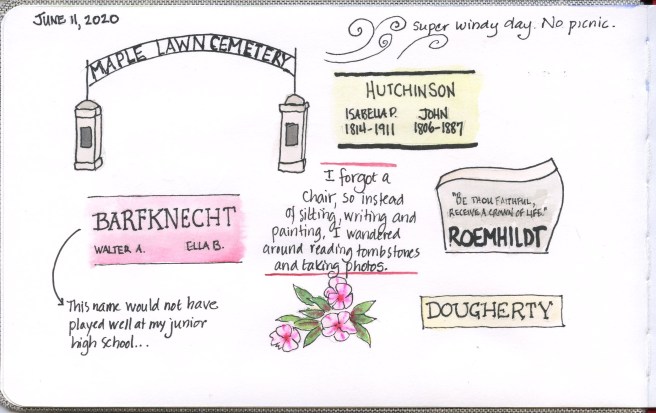 JUNE 11, 2020
super windy day. No picnic.
MAPLE LAWN CEMETERY
HUTCHINSON
ISABELLA P. JOHN
1814-1911 1806-1887
I forgot a
chair, so instead
of sitting, writing and
painting, I wandered
around reading tombstones
and taking photos.
"BE THOU FAITHFUL,
RECEIVE A CROWN OF LIFE."
ROEMHILDT
BARFKNECHT
WALTER A. ELLA B.
This name would not have
played well at my junior
high school...
DOUGHERTY